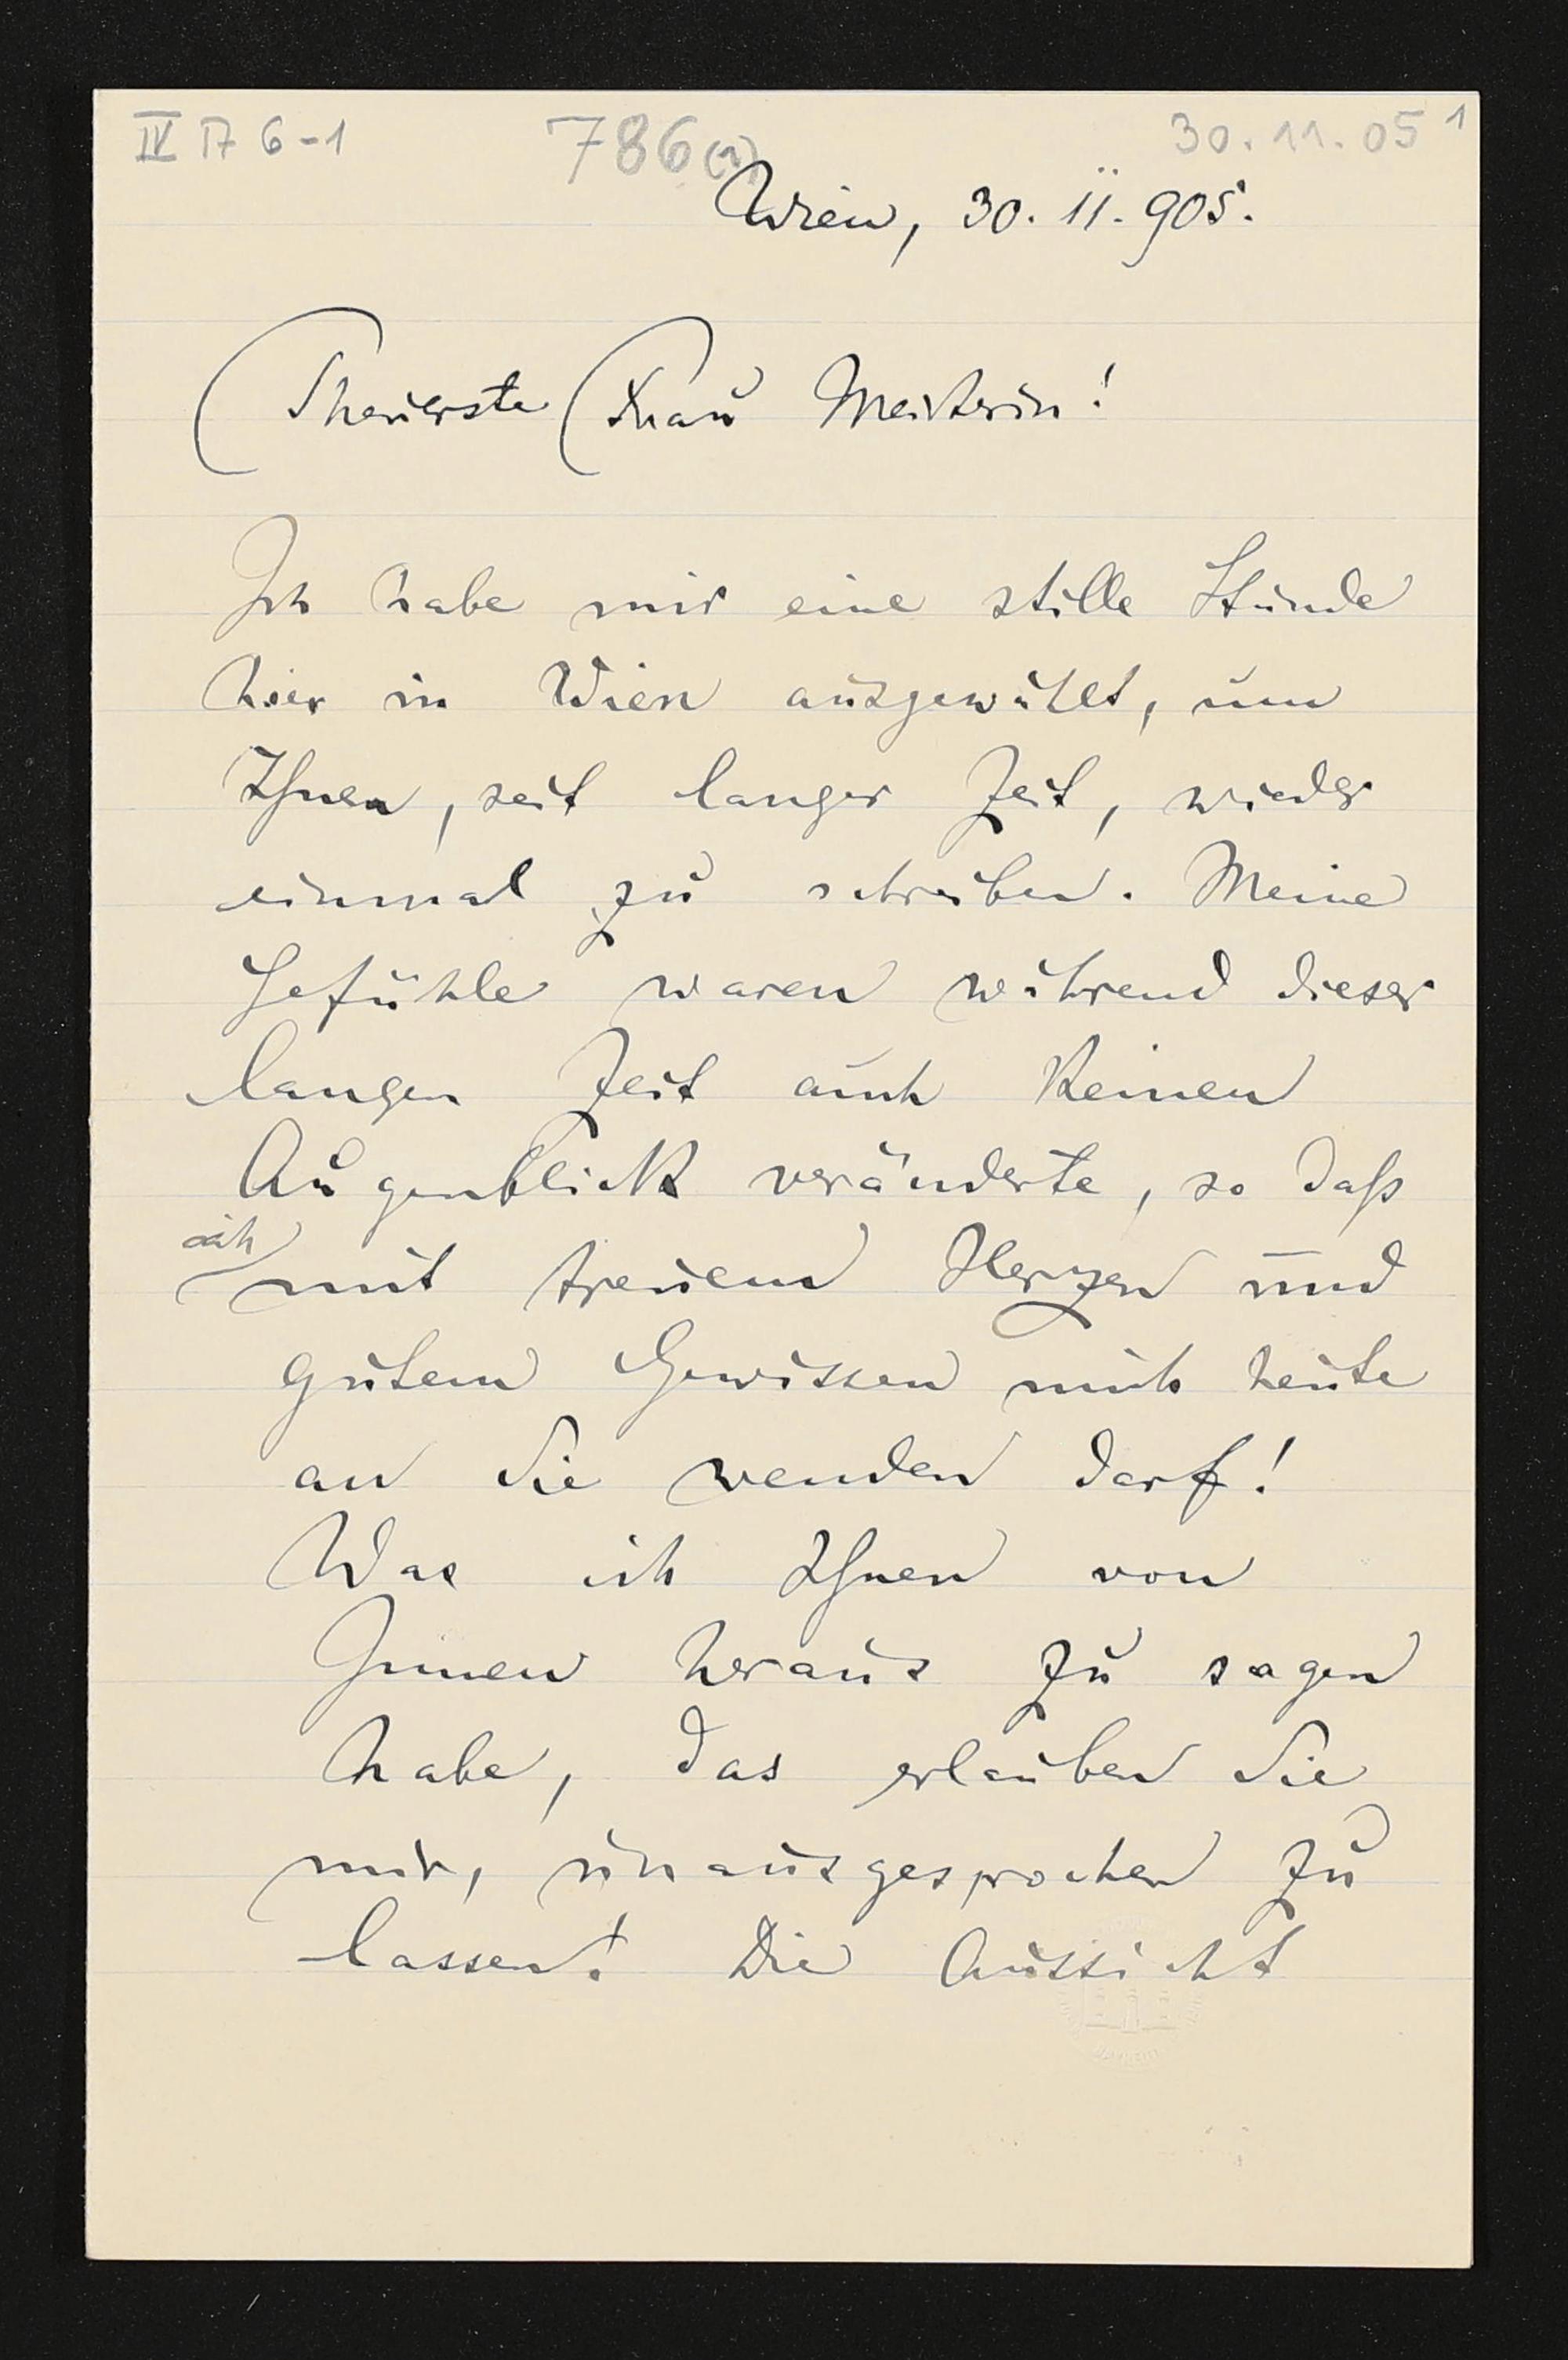 IV A 6-1 786(1) 30.11.05 1
Wien, 30. 11. 905.
Theuerste Frau Meisterin!
Ich habe mir eine stille Stunde
hier in Wien ausgewählt, um
Ihnen, seit langer Zeit, wieder
einmal zu schreiben. Meine
Gefühle waren während dieser
langen Zeit auch keinen
Augenblick veränderte, so daß
ich
mit treuem Herzen und
gutem Gewissen mich heute
an Sie wenden darf!
Was ich Ihnen von
Innen heraus zu sagen
habe, das erlauben Sie
mir, unausgesprochen zu
lassen! Die Aussicht